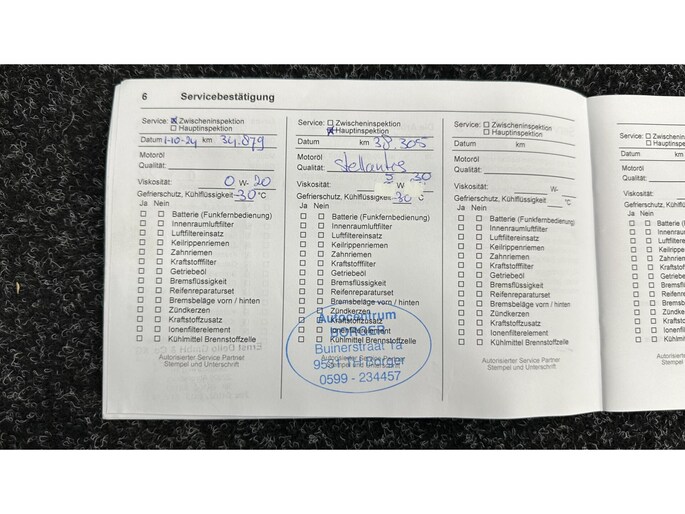 6 Servicebestätigung
Service: ☒ Zwischeninspektion
☐ Hauptinspektion
Datum 1-10-24 km 34.879
Motoröl
Qualität:
Viskosität: 0 W- 20
Gefrierschutz, Kühlflüssigkeit -30 °C
Ja Nein
☐ ☐ Batterie (Funkfernbedienung)
☐ ☐ Innenraumluftfilter
☐ ☐ Luftfiltereinsatz
☐ ☐ Keilrippenriemen
☐ ☐ Zahnriemen
☐ ☐ Kraftstofffilter
☐ ☐ Getriebeöl
☐ ☐ Bremsflüssigkeit
☐ ☐ Reifenreparaturset
☐ ☐ Bremsbeläge vorn / hinten
☐ ☐ Zündkerzen
☐ ☐ Kraftstoffzusatz
☐ ☐ Ionenfilterelement
☐ ☐ Kühlmittel Brennstoffzelle
Autorisierter Service Partner
Stempel und Unterschrift
Service: ☐ Zwischeninspektion
☒ Hauptinspektion
Datum km 38.305
Motoröl
Qualität: Stellantis
Viskosität: W 30
Gefrierschutz, Kühlflüssigkeit -30 C
Ja Nein
☐ ☐ Batterie (Funkfernbedienung)
☐ ☐ Innenraumluftfilter
☐ ☐ Luftfiltereinsatz
☐ ☐ Keilrippenriemen
☐ ☐ Zahnriemen
☐ ☐ Kraftstofffilter
☐ ☐ Getriebeöl
☐ ☐ Bremsflüssigkeit
☐ ☐ Reifenreparaturset
☐ ☐ Bremsbeläge vorn / hinten
☐ ☐ Zündkerzen
☐ ☐ Kraftstoffzusatz
☐ ☐ Ionenfilterelement
☐ ☐ Kühlmittel Brennstoffzelle
Autorisierter Service Partner
Stempel und Unterschrift
Autocentrum
BORGER
Buinerstraat 1a
Borger
0599 - 234457
Service: ☐ Zwischeninspektion
☐ Hauptinspektion
Datum km
Motoröl
Qualität:
Viskosität: W-
Gefrierschutz, Kühlflüssigkeit °C
Ja Nein
☐ ☐ Batterie (Funkfernbedienung)
☐ ☐ Innenraumluftfilter
☐ ☐ Luftfiltereinsatz
☐ ☐ Keilrippenriemen
☐ ☐ Zahnriemen
☐ ☐ Kraftstofffilter
☐ ☐ Getriebeöl
☐ ☐ Bremsflüssigkeit
☐ ☐ Reifenreparaturset
☐ ☐ Bremsbeläge vorn / hinten
☐ ☐ Zündkerzen
☐ ☐ Kraftstoffzusatz
☐ ☐ Ionenfilterelement
☐ ☐ Kühlmittel Brennstoffzelle
Autorisierter Service Partner
Stempel und Unterschrift
Service: ☐ Zwischeninspektion
☐ Hauptinspektion
Datum km
Motoröl
Qualität:
Viskosität:
Gefrierschutz,
Ja Nein